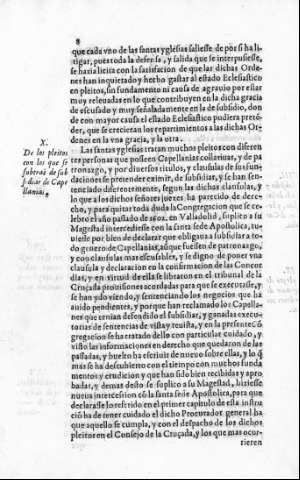 8
que cada vno de las santas yglesias saliesse de por si ha li-
tigar, pues toda la defensa, y salida que se interpusiesse,
se haria licita con la satisfacion de que las dichas Orde-
nes han inquietado y hecho gastar al estado Eclesiastico
en pleitos, sin fundamento ni causa de agrauio por estar
muy releuadas en lo que contribuyen en la dicha gracia
de escusado y muy señaladamente en la de subsidio, don
de con mayor causa el estado Eclesiastico pudiera preten-
der, que se crecieran los repartimientos a las dichas Or-
denes en la vna gracia, y la otra.
X.
De los pleitos
con los que se
de sub
sidio de Cape
llanias.
Las santas yglesias tratan muchos pleitos con diferen
tes personas que posseen Capellanias collatiuas, y de pa
tronazgo, y por diuersos titulos, y clausulas de sus fun-
daciones se pretenden eximir, de subsidiar, y se han sen-
tenciado diferentemente, segun las dichas clausulas, y
lo que a los dichos señores juezes ha parecido de dere-
cho, y para quitar toda duda la Congregacion que se ce-
lebro el año passado de en Valladolid, suplico a su
Magestad intercediesse con la santa sede Apostolica, tu-
uiesse por bien de declarar que obligaua a subsidiar a to
do genero de Capellanias, aũque fuessen de patronazgo,
y con clausulas mas escusables, y se digno de poner vna
clausula y declaracion en la confirmacion de las Concor
dias, y en virtud de ella se libraron en el tribunal de la
Cruçada prouisiones acordadas para que se executasse, y
se han ydo viendo, y sentenciando los negocios que ha
auido pendientes, y porque han reclamado los Capella-
nes que tenian defendido el subsidiar, y ganadas execu-
torias de sentencias de vista y reuista, y en la presente Cõ
gregacion se ha tratado dello con particular cuidado, y
visto las informaciones en derecho que quedaron de las
passadas, y buelto ha escriuir de nueuo sobre ellas, y lo q̃
mas se ha descubierto con el tiempo con muchos funda
mentos y erudicion y que han sido bien recibidas y apro
badas, y demas desto se suplico a su Magestad, hiziesse
nueua intercession cõ la santa sede Apostolica, para que
declarasse lo referido en el primer capitulo de esta instru
ciõ ha de tener cuidado el dicho Procurador general ha
que aquello se cumpla, y con el despacho de los dichos
pleitos en el Consejo de la Cruçada, y los que mas ocur-
rieren